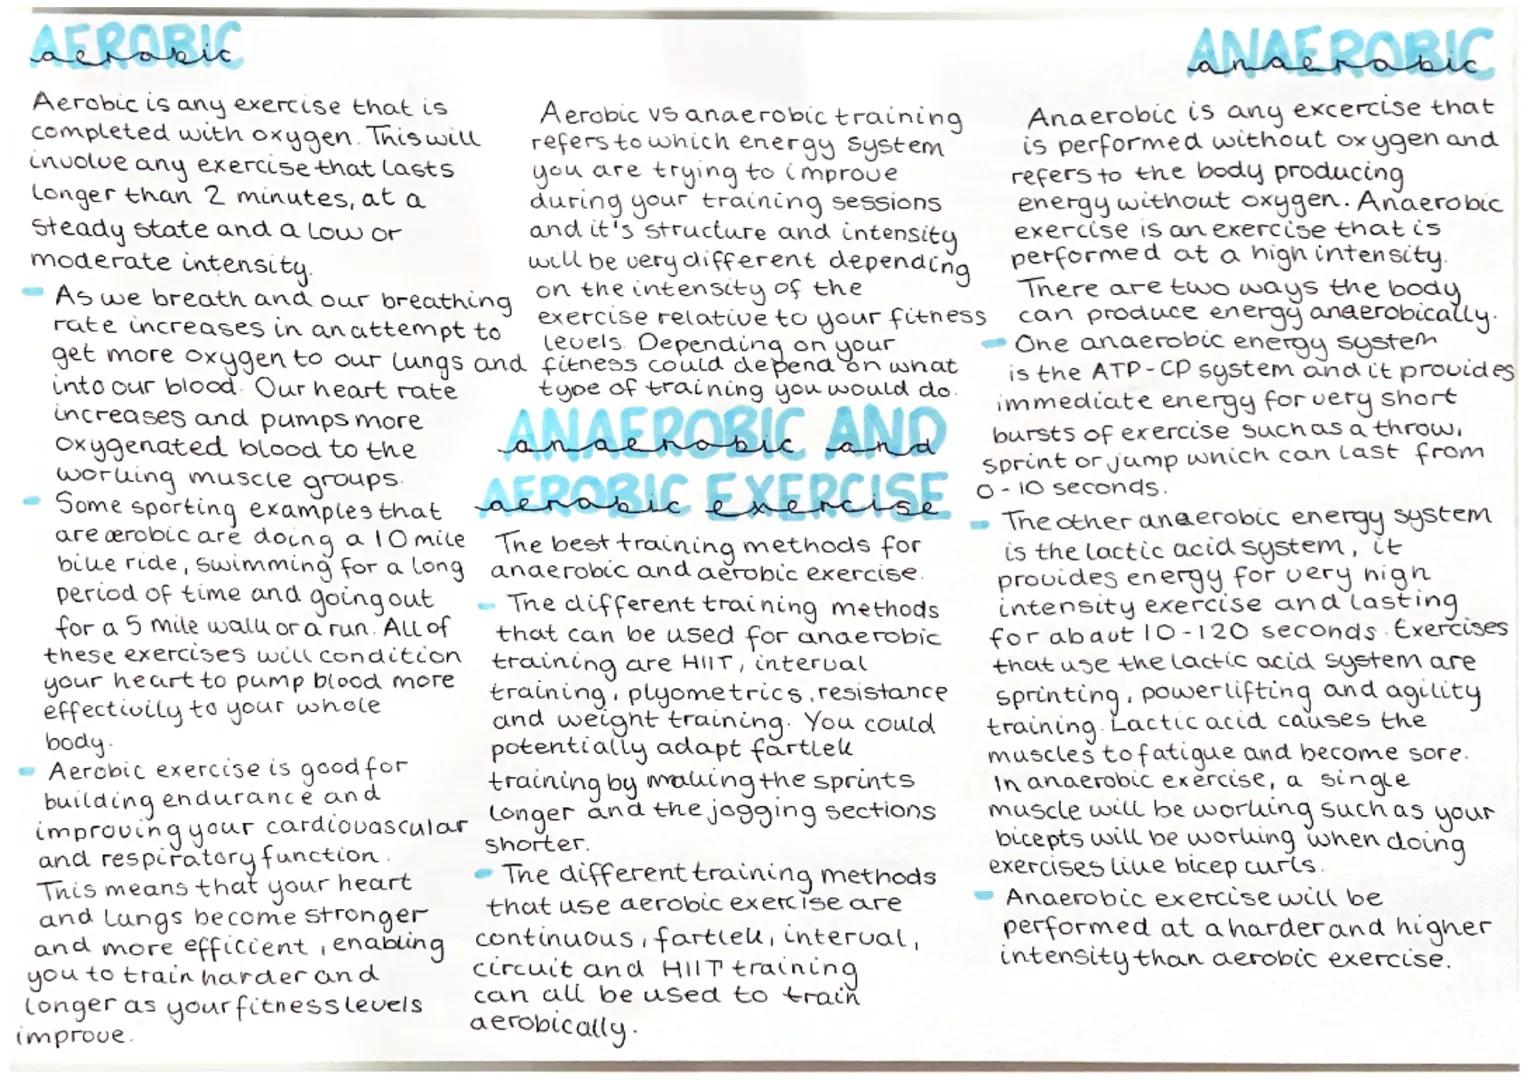 AEROBIC
aerobic
Aerobic is any exercise that is
completed with oxygen. This will
involve any exercise that lasts
longer than 2 minutes, at a
steady state and a low or
moderate intensity.
As we breath and our breathing
rate increases in an attempt to
get more oxygen to our lungs and
into our blood. Our heart rate
increases and pumps more
oxygenated blood to the
working muscle groups.
Some sporting examples that
are aerobic are doing a 10 mile
bike ride, swimming for a long
period of time and going out
for a 5 mile walk or a run. All of
these exercises will condition
your heart to pump blood more
effectivily to your whole
body.
Aerobic exercise is good for
building endurance and
improving your cardiovascular
and respiratory function.
This means that your heart
and lungs become stronger
and more efficient, enabling
you to train harder and
longer as your fitness levels
improve.
Aerobic vs anaerobic training
refers to which energy system
you are trying to improve
during your training sessions
and it's structure and intensity
will be very different depending
on the intensity of the
exercise relative to your fitness
levels. Depending on your
fitness could depend on what
type of training you would do.
ANAEROBIC AND
anaerobic and
AEROBIC EXERCISE
aerobic exercise
The best training methods for
anaerobic and aerobic exercise.
The different training methods
that can be used for anaerobic
training are HIIT, interval
training, plyometrics, resistance
and weight training. You could
potentially adapt fartlek
training by making the sprints
longer and the jogging sections
shorter.
The different training methods
that use aerobic exercise are
continuous, fartlek, interval,
circuit and HIIT training
can all be used to train
aerobically.
ANAEROBIC
anaerobic
Anaerobic is any excercise that
is performed without oxygen and
refers to the body producing
energy without oxygen. Anaerobic
exercise is an exercise that is
performed at a high intensity.
There are two ways the body
can produce energy anaerobically.
One anaerobic energy system
is the ATP-CP system and it provides
immediate energy for very short
bursts of exercise such as a throw,
sprint or jump which can last from
0-10 seconds.
The other anaerobic energy system
is the lactic acid system, it
provides energy for very high
intensity exercise and lasting
for about 10-120 seconds. Exercises
that use the lactic acid system are
sprinting, powerlifting and agility
training. Lactic acid causes the
muscles to fatigue and become sore.
In anaerobic exercise, a single
muscle will be working such as your
biceps will be working when doing
exercises like bicep curls.
Anaerobic exercise will be
performed at a harder and higher
intensity than aerobic exercise.